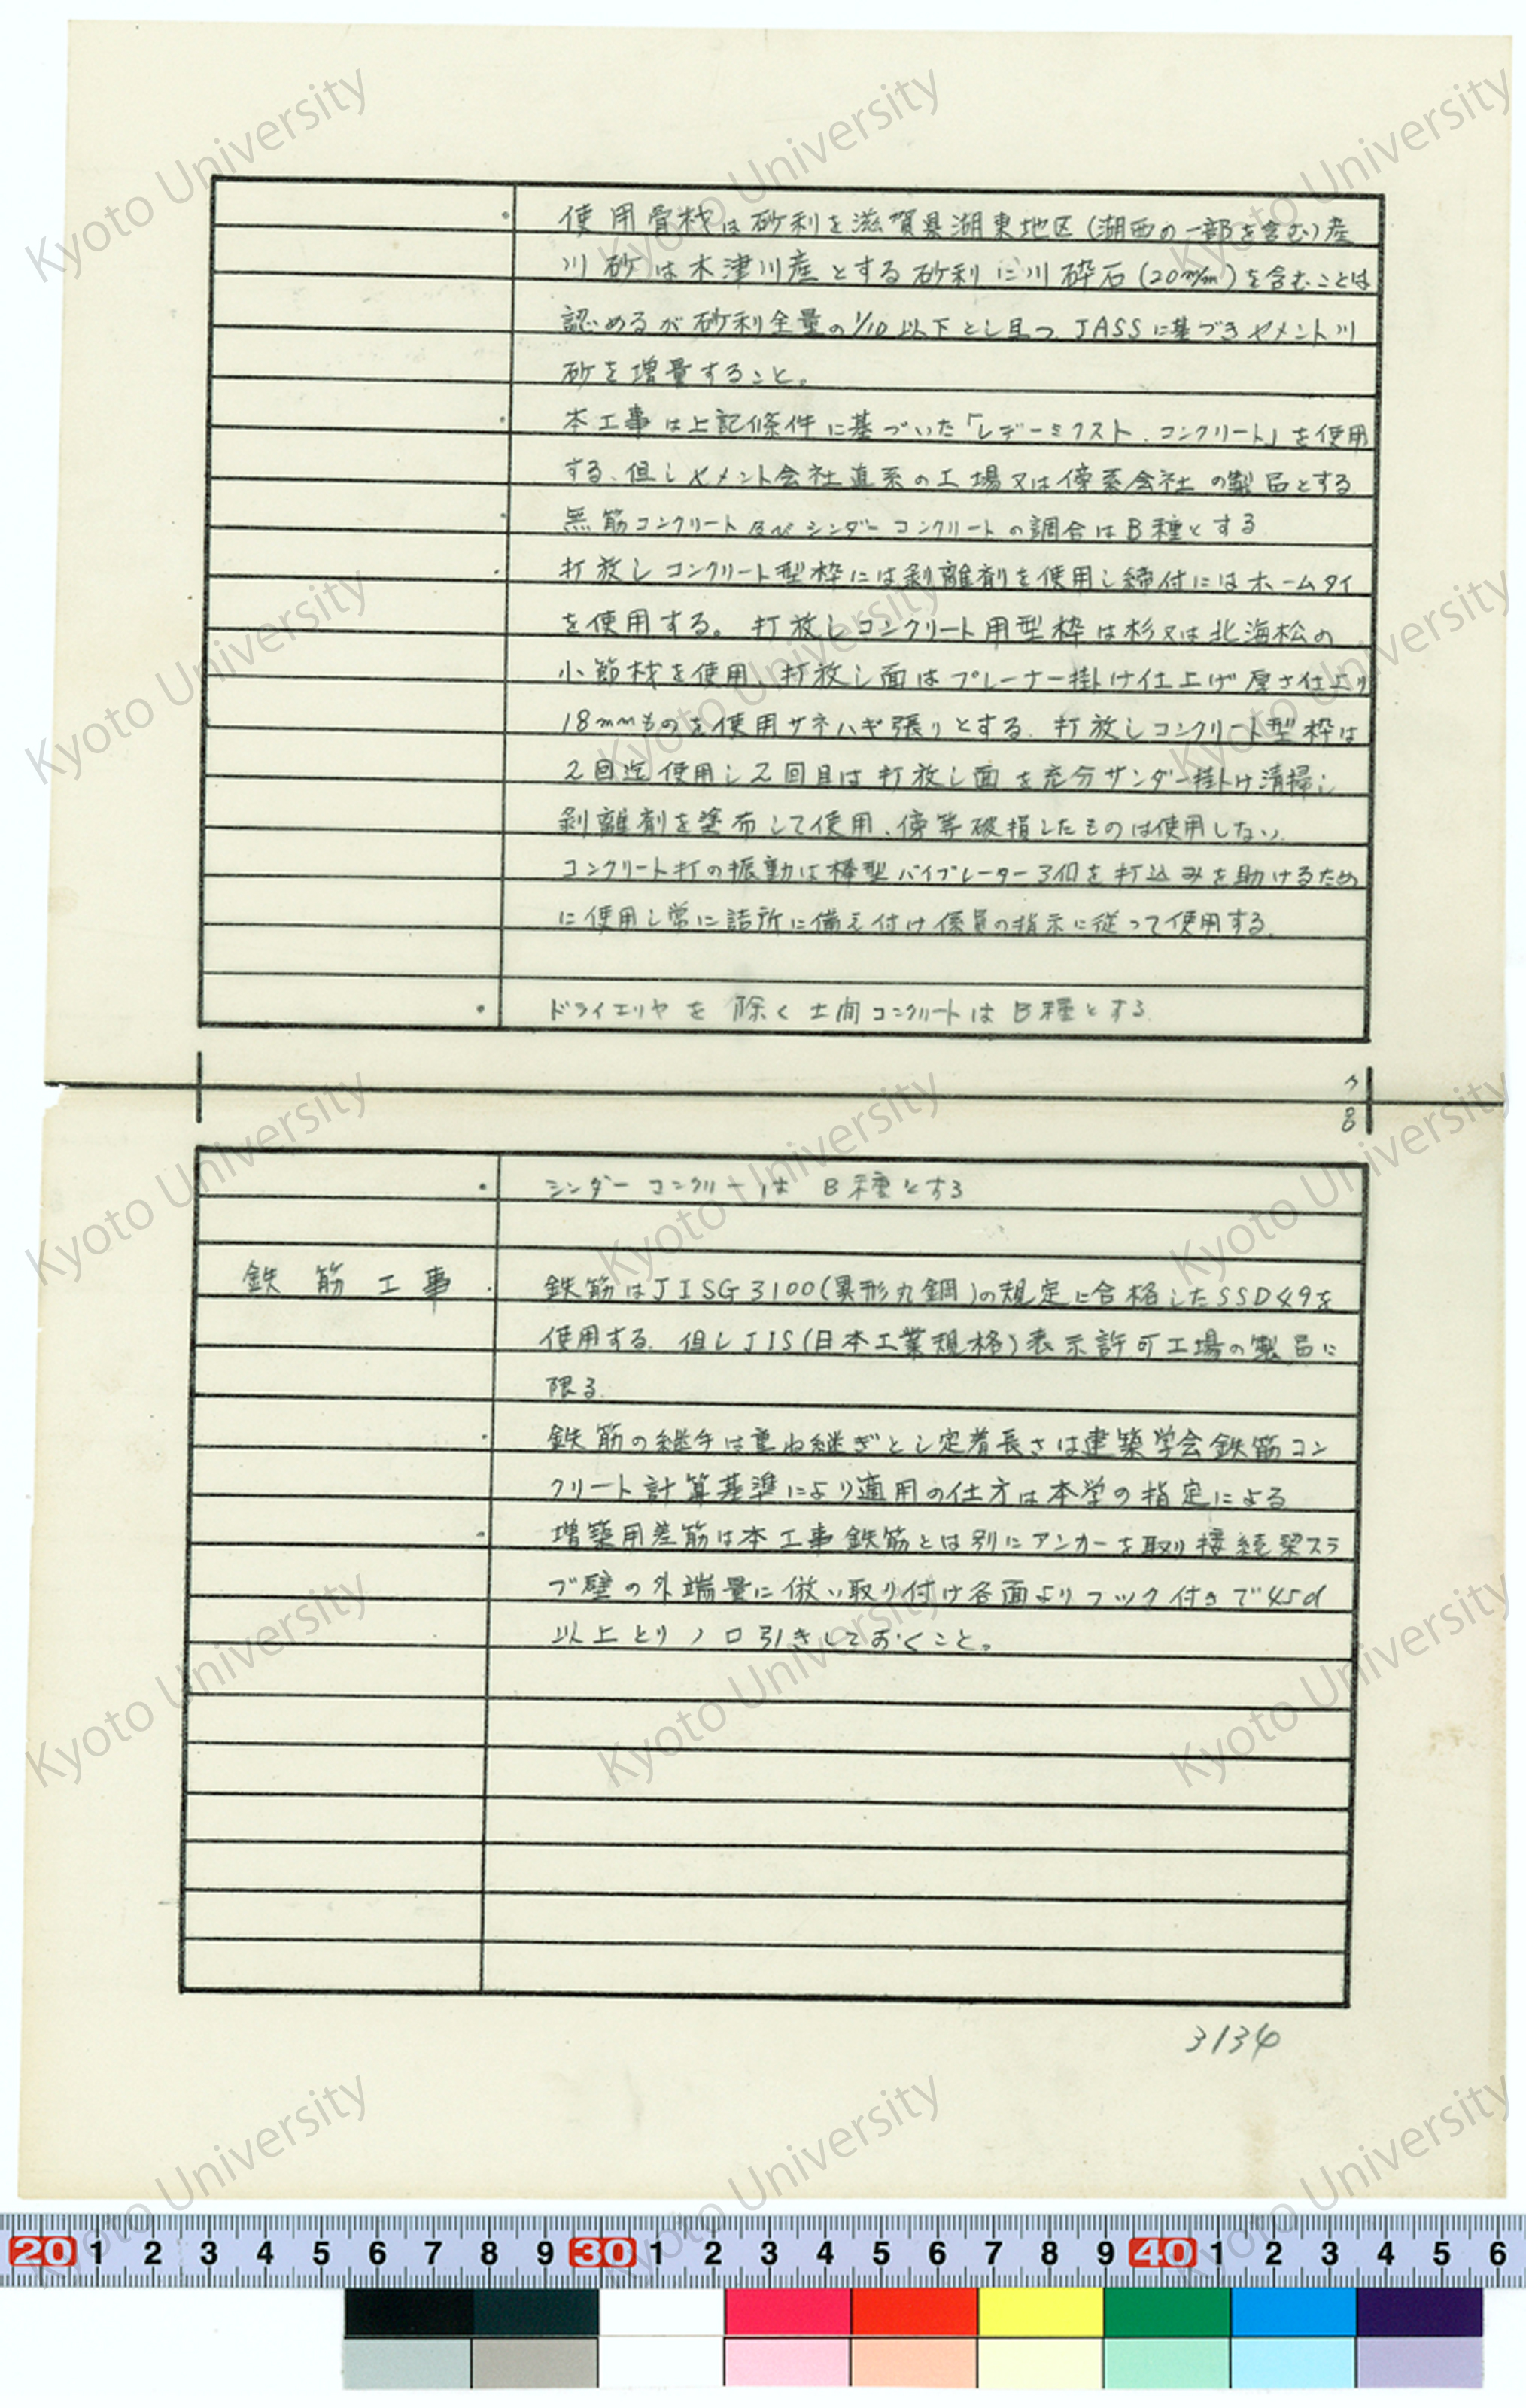 ・使用骨材は砂利を滋賀県湖東地区(湖西の一部を含む)産
川砂は木津川産とする砂利に川砕石(20m/m)を含むことは
認めるが砂利全量の1/10以下とし且つJASSに基づきセメント川
砂を増量すること。
・本工事は上記條件に基づいた「レデーミクスト、コンクリート」を使用
する、但しセメント会社直系の工場又は傍系会社の製品とする
・無筋コンクリート及びシンダーコンクリートの調合はB種とする
・打放しコンクリート型枠には剥離剤を使用し締付にはホームタイ
を使用する。打放しコンクリート用型枠は杉又は北海松の
小節材を使用、打放し面はプレーナー掛け仕上げ厚さ仕上り
18mmものを使用サネハギ張りとする、打放しコンクリート型枠は
2回迄使用し2回目は打放し面を充分サンダー掛け清掃し
剥離剤を塗布して使用、傍等破損したものは使用しない、
コンクリート打の振動は棒型バイブレーター3個を打込みを助けるため
に使用し常に詰所に備え付け係員の指示に従って使用する。
・ドライエリヤを除く土間コンクリートはB種とする
8
・シンダーコンクリーはB種とする
鉄筋工事・鉄筋はJISG3100(異形丸鋼)の規定に合格したSSD49を
使用する。但しJIS(日本工業規格)表示許可工場の製品に
限る。
・鉄筋の継手は重ね継ぎとし定着長さは建築学会鉄筋コン
クリート計算基準により適用の仕方は本学の指定による
・増築用差筋は本工事鉄筋とは別にアンカーを取り接続梁スラ
ブ壁の外端量に倣い取り付け各面よりフック付きで45d
以上とりノロ引きしておくこと。
3134
Kyoto University
20 1 2 3 4 5 6 7 8 9 30 1 2 3 4 5 6 7 8 9 40 1 2 3 4 5 6